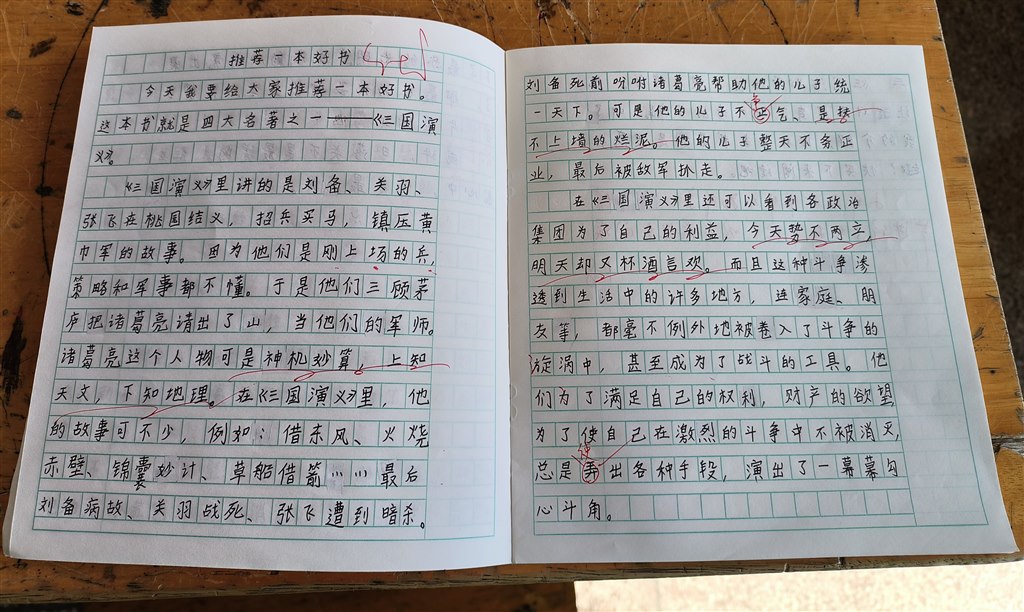 推荐一本好书
今天我要给大家推荐一本好书。
这本书就是四大名著之一——《三国演
义》。
《三国演义》里讲的是刘备、关羽、
张飞在桃园结义，招兵买马，镇压黄
巾军的故事。因为他们是刚上场的兵，
策略和军事都不懂。于是他们三顾茅
庐把诸葛亮请出了山，当他们的军师。
诸葛亮这个人物可是神机妙算，上知
天文，下知地理。在《三国演义》里，他
的故事可不少，例如：借东风、火烧
赤壁、锦囊妙计、草船借箭……最后
刘备病故、关羽战死、张飞遭到暗杀。
刘备死前吩咐诸葛亮帮助他的儿子统
一天下。可是他的儿子不气、是扶
不上墙的烂泥。他的儿子整天不务正
业，最后被敌军扒走。
在《三国演义》里还可以看到各政治
集团为了自己的利益，今天势不两立，
明天却又杯酒言欢。而且这种斗争渗
透到生活中的许多地方，连家庭、朋
友等，都毫不例外地被卷入了斗争的
旋涡中，甚至成为了战斗的工具。他
们为了满足自己的权利，财产的欲望
为了使自己在激烈的斗争中不被消灭，
总是出各种手段，演出了一幕幕勾
心斗角。